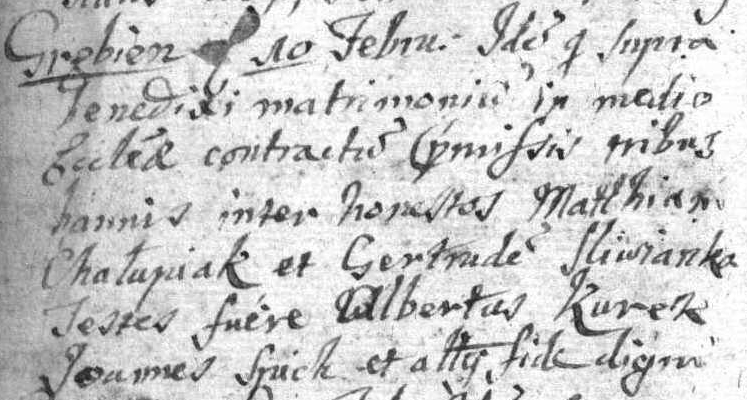 Grębien 10 Febru: Idē q supra
benedixi matrimoniū in medio
Eccleæ contractū (pmissis tribus
bannis inter honestos Matthiam
Chałupiak et Gertrudē Sliwianka
Testes fuére Albertus Kurek
Joannes Spich et alty fide digni